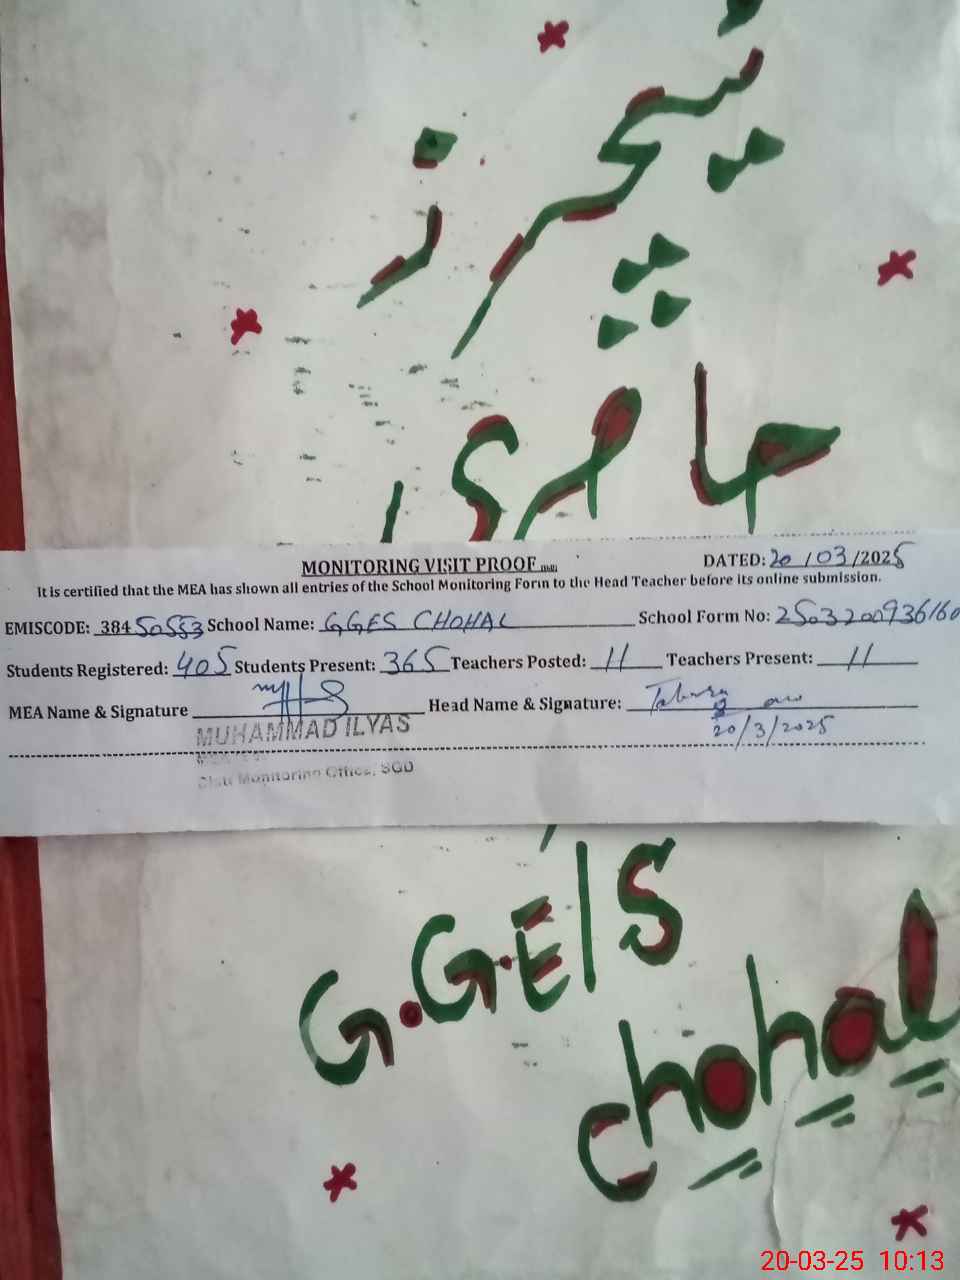 ٹیچرز
حاضری
MONITORING VISIT PROOF
DATED: 20/03/2025
It is certified that the MEA has shown all entries of the School Monitoring Form to the Head Teacher before its online submission.
EMISCODE: 38450553 School Name: GGES CHOHAL School Form No: 2503200936160
Students Registered: 405 Students Present: 365 Teachers Posted: 11 Teachers Present: 11
MEA Name & Signature Head Name & Signature:
MUHAMMAD ILYAS
20/3/2025
Distt Monitoring Office, SGD
G.G.E/S
chohal
20-03-25 10:13